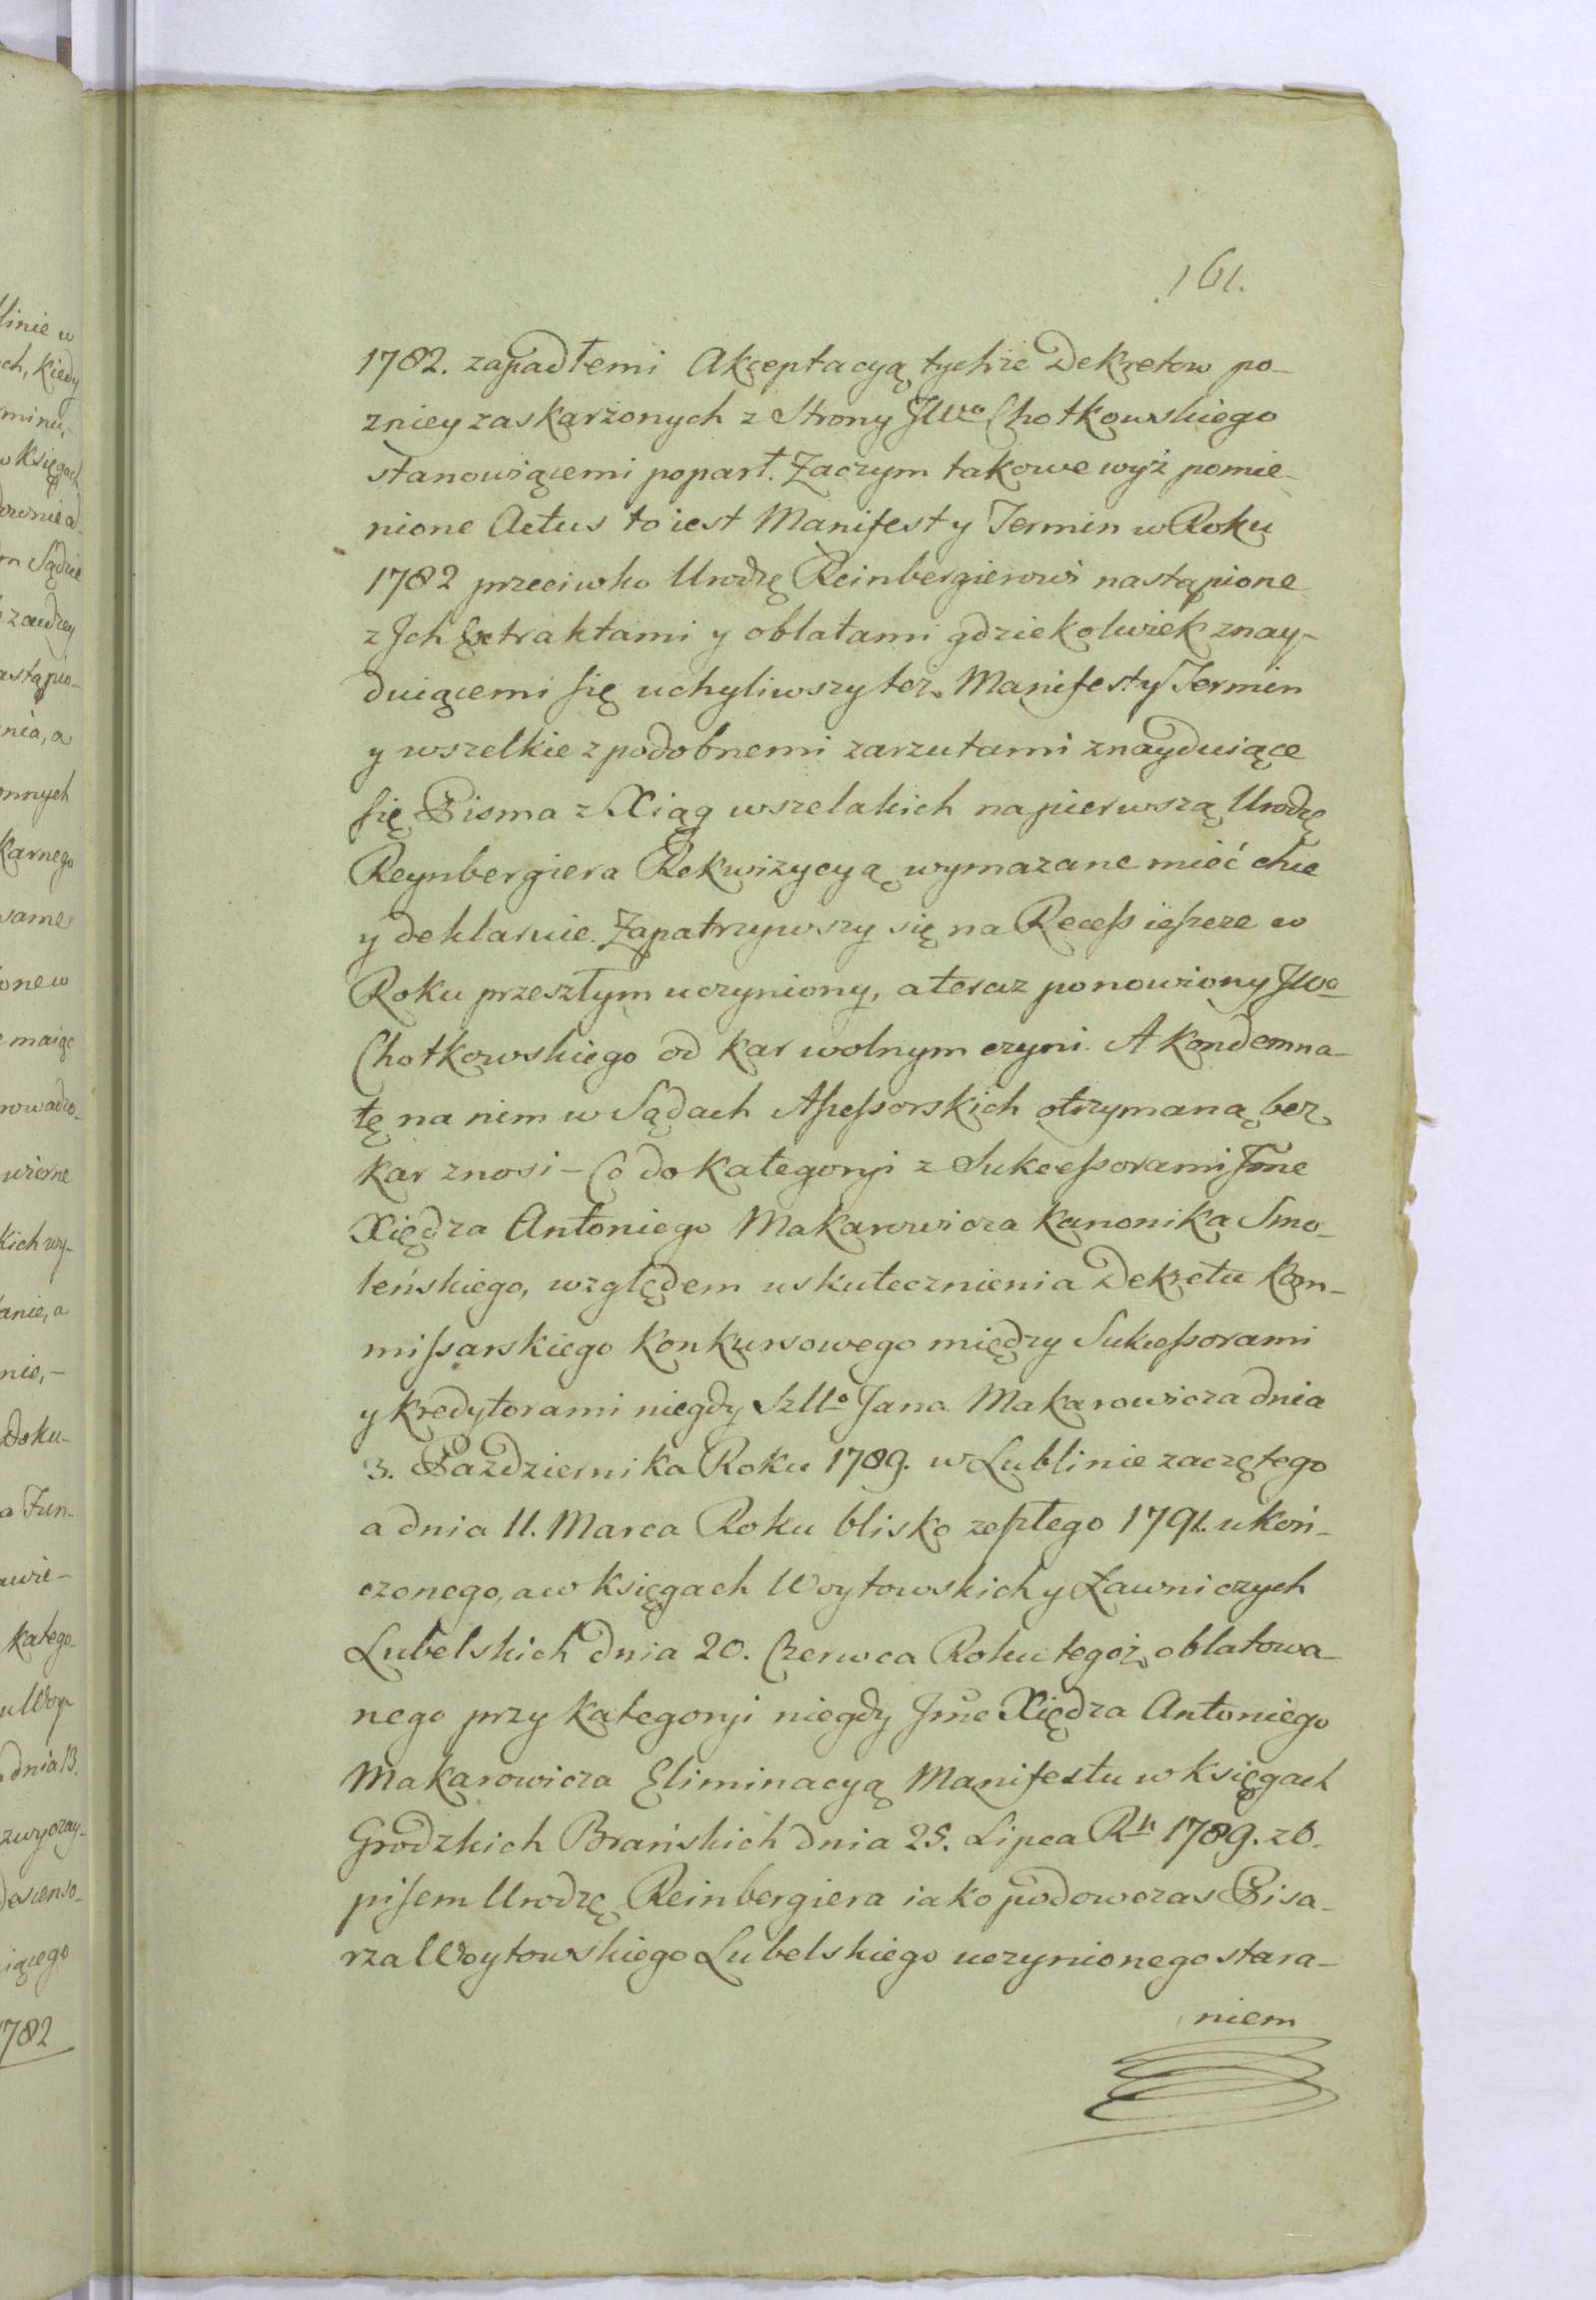 161.
1782. zapadłemi Akceptacyą tychże Dekretow po-
zniey zaskarżonych z Strony JWo Chotkowskiego
stanowiącemi poparł. Zaczym takowe wyż pomie-
nione Actus to iest Manifest y Termin w Roku
1782 przeciwko Urodzę Reinbergierowi nastąpione
z Jch Extraktami y oblatami gdziekolwiek znay-
duiącemi się uchyliwszy też Manifesty Termin
y wszelkie z podobnemi zarzutami znayduiące
się Pisma z Xiąg wszelakich na pierwszą Urodzę
Reynbergiera Rekwizycyą wymazane mieć chce
y deklaruie. Zapatrzywszy się na Recess ieszcze w
Roku przeszłym uczyniony, a teraz ponowiony JWo
Chotkowskiego od kar wolnym czyni. A Kondemna-
tę na nim w Sądach Assessorskich otrzymaną bez
kar znosi – Co do kategoryi z Sukcessorami Jmc
Xiędza Antoniego Makarowicza Kanonika Smo-
leńskiego, względem uskutecznienia Dekretu Kom-
missarskiego Konkursowego między Sukcessorami
y Kredytorami niegdy Szllo Jana Makarowicza dnia
3. Pazdziernika Roku 1789. w Lublinie zaczętego
a dnia 11. Marca Roku blisko zeszłego 1791. ukoń-
czonego, a w księgach Woytowskich y Ławniczych
Lubelskich dnia 20. Czerwca Roku tegoż oblatowa-
nego przy kategoryi niegdy Jmc Xiędza Antoniego
Makarowicza Eliminacyą Manifestu w Księgach
Grodzkich Brańskich dnia 25. Lipca Rku 1789. z O-
pisem Urodzę Reinbergiera iako podowczas Pisa-
rza Woytowskiego Lubelskiego uczynionego stara-
niem